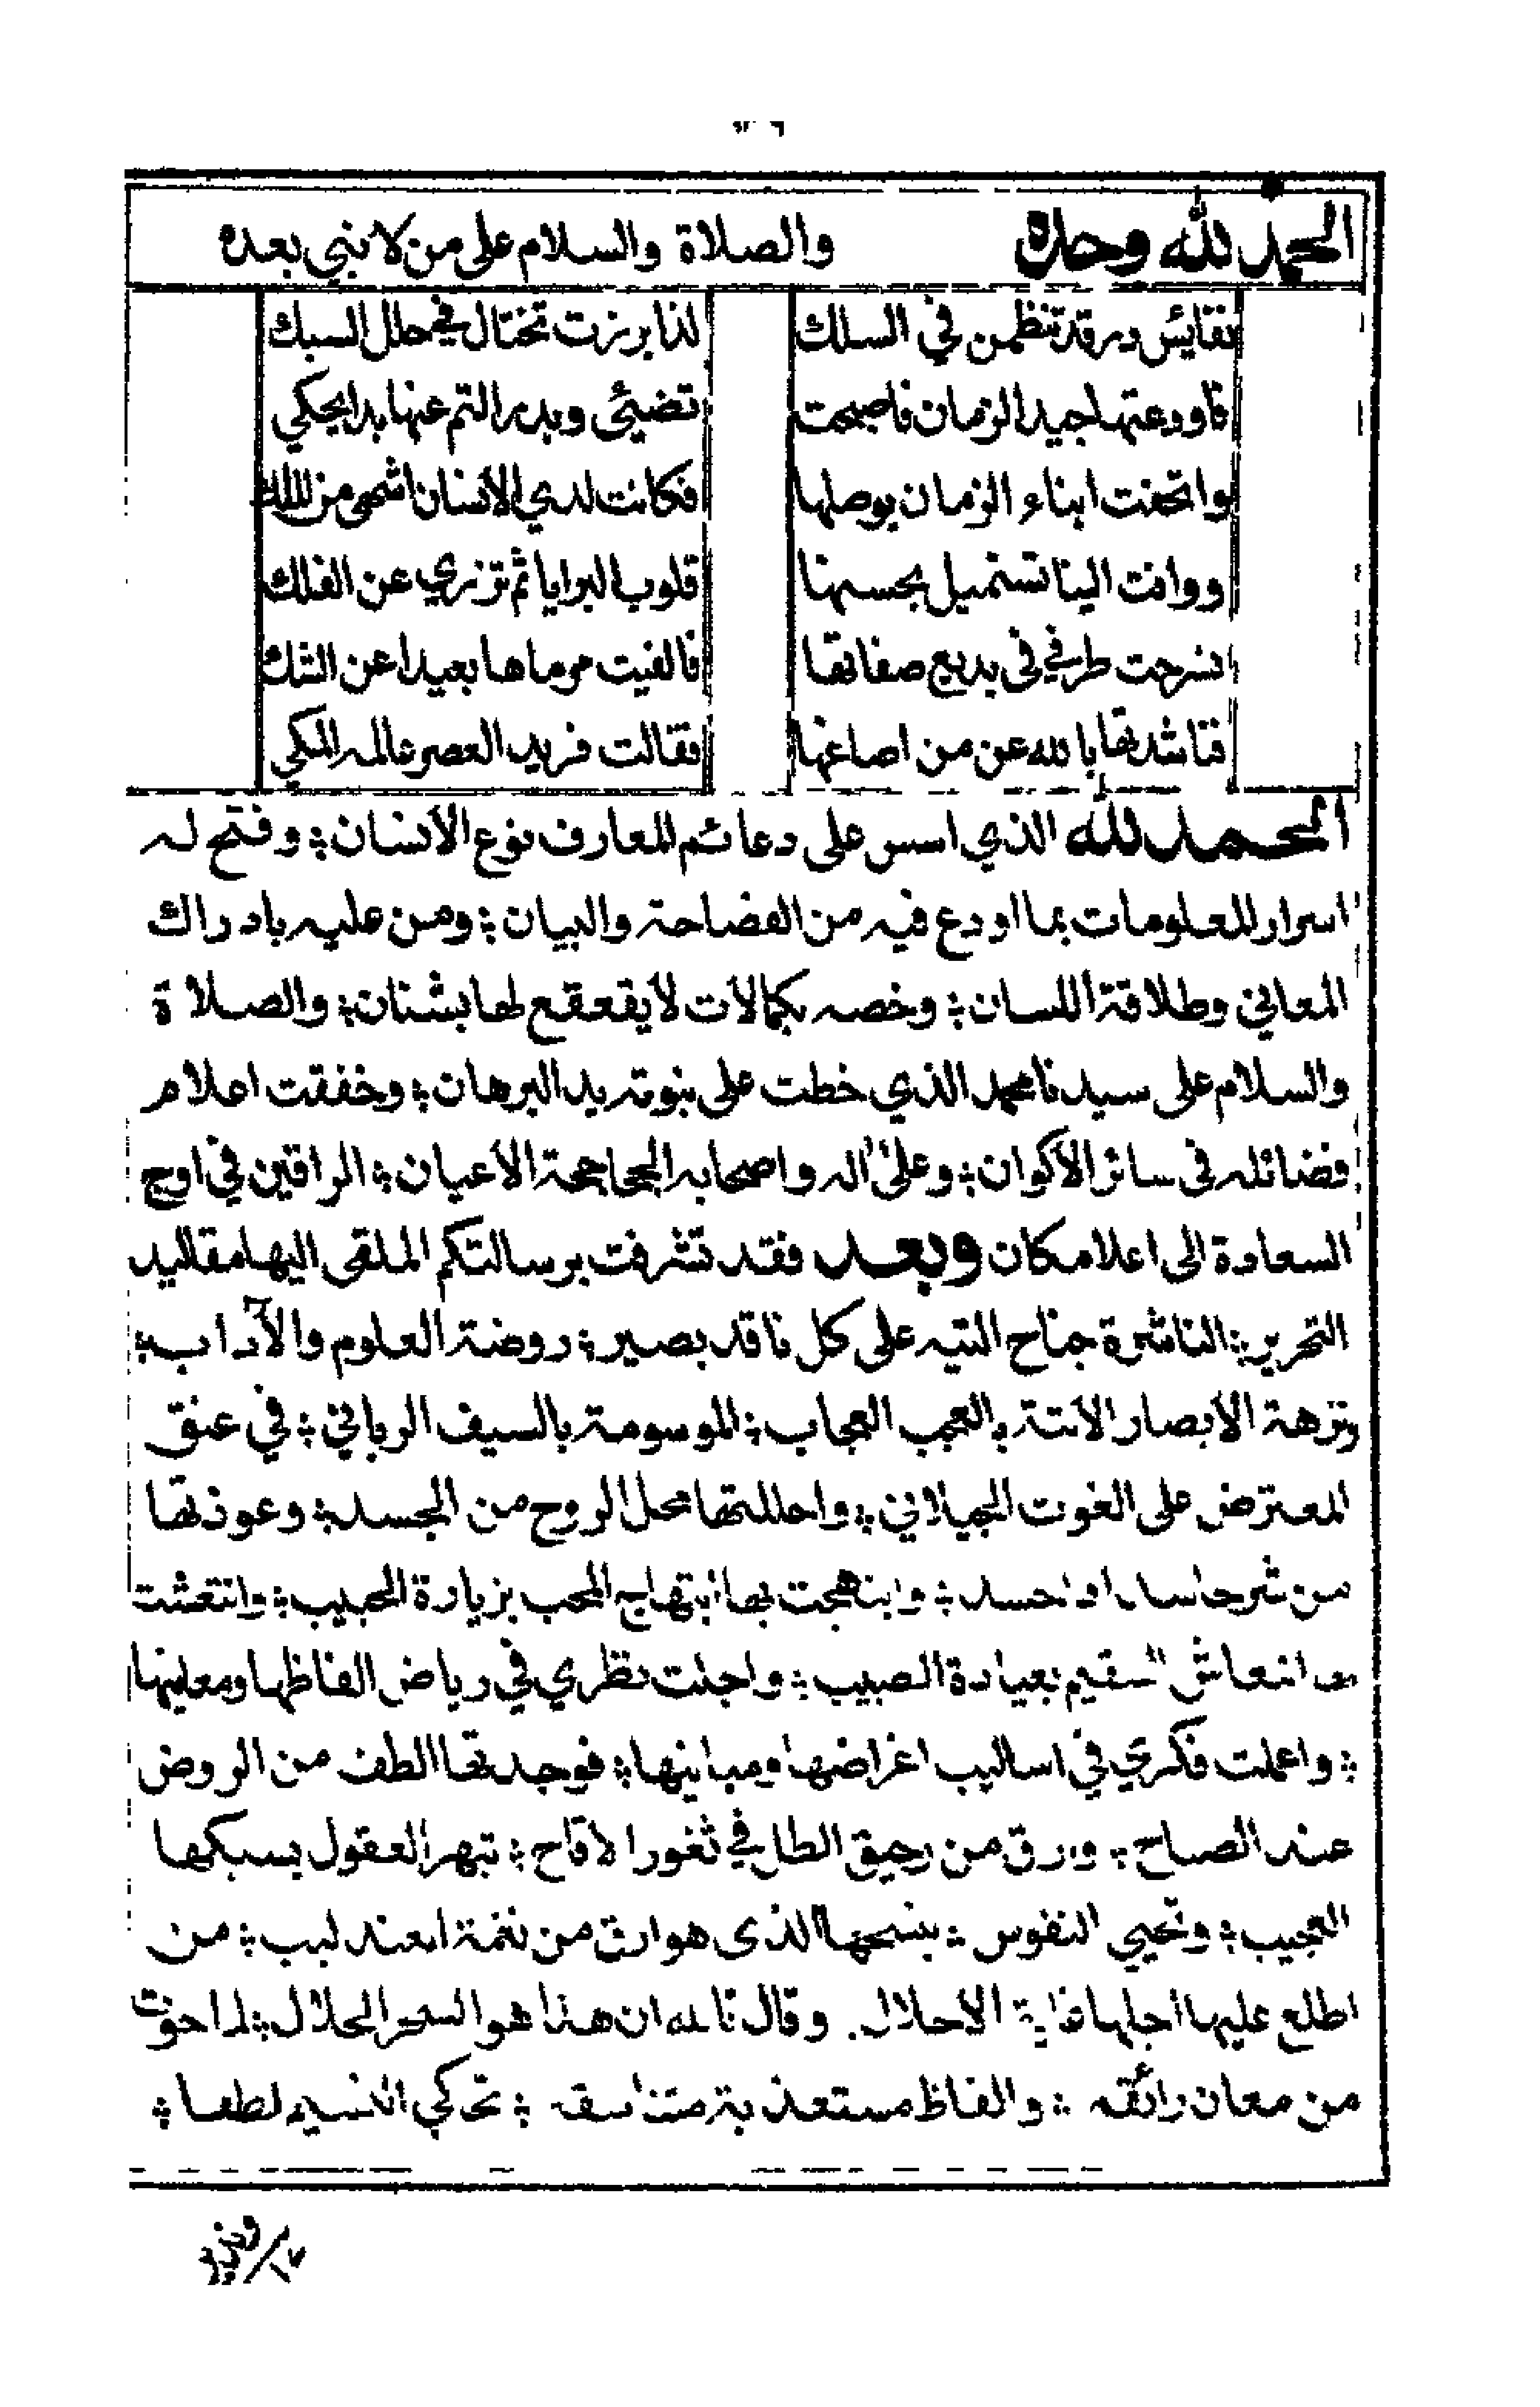 الحمد لله وحده والصلاة والسلام على من لا نبي بعده
نفايس در قد تنظمن في السلك لذا برزت تختال في حلل السبك
فاودعتها جيد الزمان فاصبحت تضيئ وبدر التم عنها بدا يحكي
واتحفت ابناء الزمان بوصلها فكانت لدي الانسان اشهى من الملك
ووافت الينا تستميل بحسنها قلوب البرايا ثم تزري عن الفلك
فسرحت طرفي في بديع صفاتها فالفيت مرماها بعيدا عن الشك
فناشدتها بالله عن من اصاغها فقالت فريد العصر عالمه المكي
الحمد لله الذي اسس على دعائم المعارف نوع الانسان ؛ وفتح له
اسرار المعلومات بما اودع فيه من الفصاحة والبيان ؛ ومن عليه بادراك
المعاني وطلاقة اللسان ؛ وخصه بكمالات لا يقعقع لها بشنان ؛ والصلاة
والسلام على سيدنا محمد الذي خطت على نبوته يد البرهان ؛ وخفقت اعلام
فضائله في سائر الاكوان ؛ وعلى اله واصحابه الججاجحة الاعيان ؛ الراقين في اوج
السعادة الى اعلا مكان وبعد فقد تشرفت برسالتكم الملقى اليها مقاليد
التحرير ؛ الناشرة جناح التيه على كل ناقد بصير ؛ روضة العلوم والآداب ؛
ونزهة الابصار الاتية بالعجب العجاب ؛ الموسومة بالسيف الرباني ؛ في عنق
المعترض على الغوث الجيلاني ؛ واحللتها محل الروح من الجسد ؛ وعوذتها
من شر حاسد اذا حسد ؛ وابتهجت بها ابتهاج المحب بزيارة الحبيب ؛ وانتعشت
بها انتعاش السقيم بعيادة الصبيب ؛ واجلت نظري في رياض الفاظها ومعانيها
؛ واعملت فكرتي في اساليب اغراضها ومبانيها ؛ فوجدتها الطف من الروض
عند الصباح ؛ وارق من رحيق الطل في ثغور الاقاح ؛ تبهر العقول بسبكها
العجيب ؛ وتحيي النفوس ؛ بنسجها الذى هو ارق من نغمة العندليب ؛ من
اطلع عليها اجلها غاية الاحلال . وقال تالله ان هذا هو السحر الحلال ؛ لما حوت
من معان رائقه ؛ والفاظ مستعذبة متناسقه ؛ تحاكي النسيم لطفا ؛